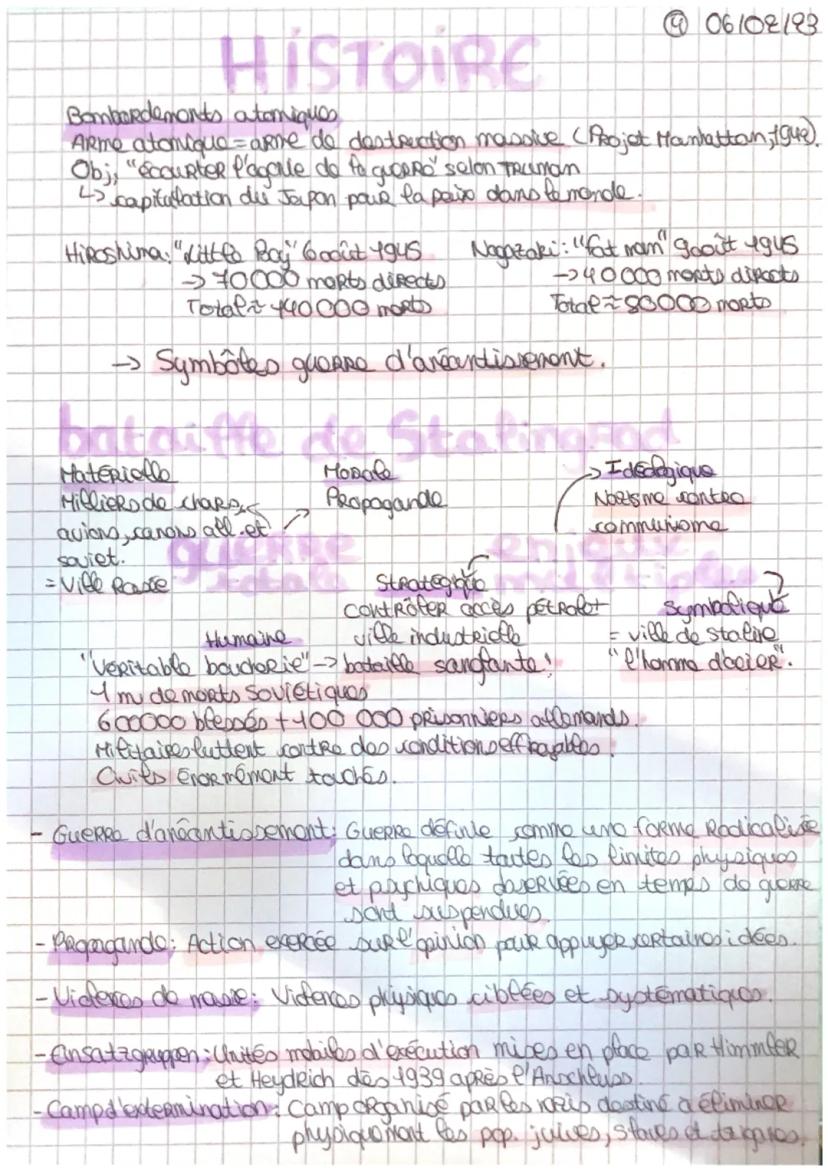 ④ 06/02/23
HISTOIRE
Bombardements atomiques
Arme atomique = arme de destruction massive (Projet Manhattan, 1942).
Obj, "écourter l'agonie de la guerre" selon Truman
↳ capitulation du Japon pour la paix dans le monde.
Hiroshima: "Little Boy" 6 août 1945
→ 70000 morts directs
Total ≈ 140000 morts
Nagazaki: "fat man" 9 août 1945
→ 40000 morts directs
Total ≈ 80000 morts
→ Symbôles guerre d'anéantissement.
bataille de Stalingrad
guerre totale
enjeux multiples
Matérielle
Milliers de chars,
avions, canons all. et
soviet.
= Ville Rasée
Morale
Propagande
Idéologique
Nazisme contre
communisme
Stratégique
Contrôler accès pétrole +
ville industrielle
Symbolique
= ville de Staline
"l'homme d'acier".
Humaine
"Véritable boucherie" → bataille sanglante!
1 m de morts soviétiques
600000 blessés + 100 000 prisonniers allemands.
Militaires luttent contre des conditions effroyables.
Civils énormément touchés.
- Guerre d'anéantissement: Guerre définie comme une forme Radicalisée
dans laquelle toutes les limites physiques
et psychiques observées en temps de guerre
sont suspendues.
- Propagande: Action exercée sur l'opinion pour appuyer certaines idées.
- Violences de masse: Violences physiques ciblées et systématiques.
- Einsatzgruppen: Unités mobiles d'exécution mises en place par Himmler
et Heydrich dès 1939 après l'Anschluss.
- Camp d'extermination: Camp organisé par les nazis destiné à éliminer
physiquement les pop. juives, slaves et tziganes.